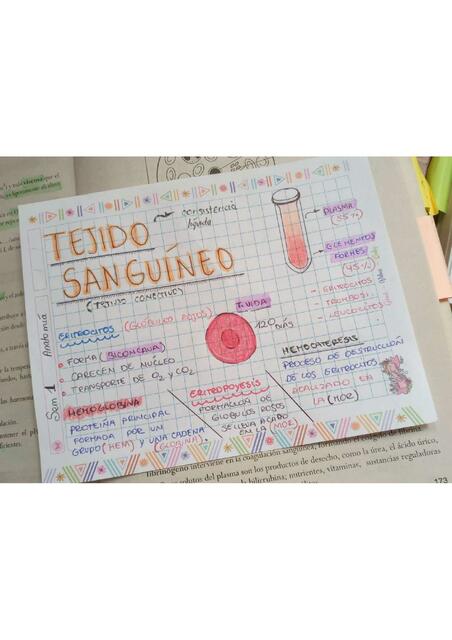 TEJIDO
SANGUÍNEO
(TEJIDO CONECTIVO)
consistencia
líquida
PLASMA
(55%)
ELEMENTOS
FORMES
(45%)
- ERITROCITOS
- TROMBOCI.
- LEUCOCITOS
Sem 1 Anatomía
ERITROCITOS (GLÓBULOS ROJOS)
• FORMA (BICONCAVA)
• CARECEN DE NÚCLEO
• TRANSPORTE DE O2 Y CO2
T. VIDA
120 DÍAS
HEMOGLOBINA
PROTEÍNA PRINCIPAL
FORMADA POR UN
GRUPO (HEM) Y UNA CADENA
(GLOBINA).
ERITROPOYESIS
FORMACIÓN DE
GLÓBULOS ROJOS
SE LLEVA ACABO
EN LA (MOR)
HEMOCATERESIS
PROCESO DE DESTRUCCIÓN
DE LOS ERITROCITOS
REALIZADO EN
LA (MOR)
fibrinógeno interviene en la coagulación sanguínea, formando el coágulo de fibrina
solutos del plasma son los productos de desecho, como la urea, el ácido úrico,
bilirrubina; nutrientes, vitaminas, sustancias reguladoras
173